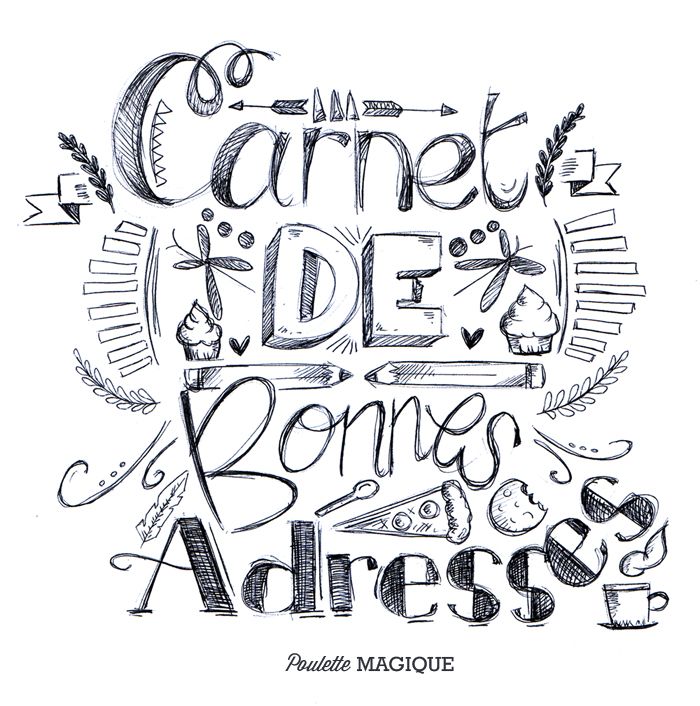 Carnet
DE
Bonnes
Adresses
Poulette MAGIQUE